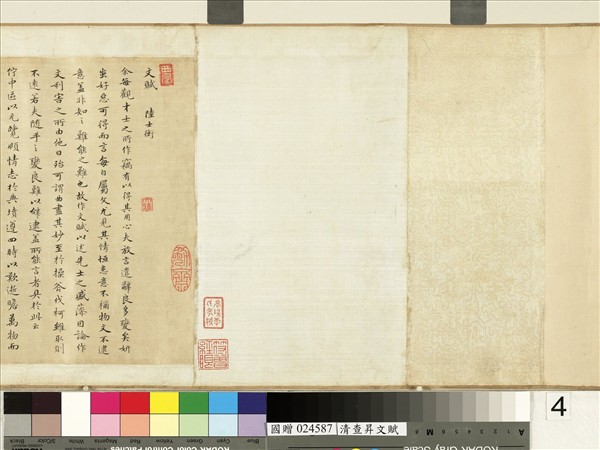 文賦 陸士衡
余每觀才士之所作竊有以得其用心夫放言遣辭良多變矣妍
蚩好惡可得而言每自屬文尤見其情恒患意不稱物文不逮
意蓋非知之難能之難也故作文賦以述先士之盛藻因論作
文利害之所由他日殆可謂曲盡其妙至於操斧伐柯雖取則
不遠若夫隨手之變良難以辭逮蓋所能言者具於此云
佇中區以玄覽頤情志於典墳遵四時以歎逝瞻萬物而
4
國贈 024587 清查昇文賦
Blue
Cyan
Green
Yellow
Red
Magenta
White
3/Color
Black
KODAK Color Control Patches
KODAK Gray Scale
A 1 2 3 4 5 6 M 8 9 10 11 12 13 14 15 B 17 18 19